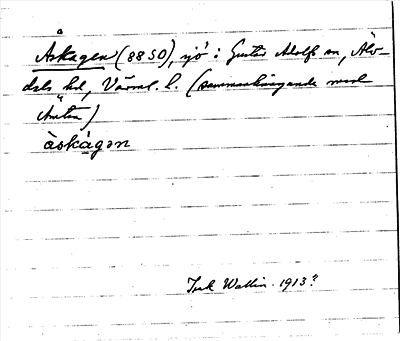 Åskagen (8850), sjö i Gustav Adolfs sn, Älv-
dals hd, Värml. l. (sammanhängande med
Ämten)
àskágən
Wallin. 1913?